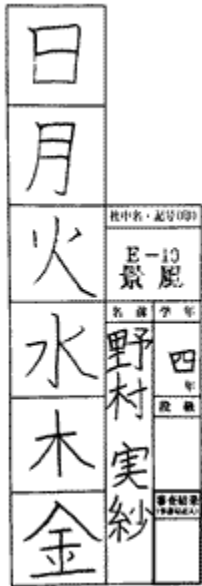 日
月
火
水
木
金
社中名・記号(印)
E-10
景風
名前
野村 実紗
学年
四年
段級
審査結果